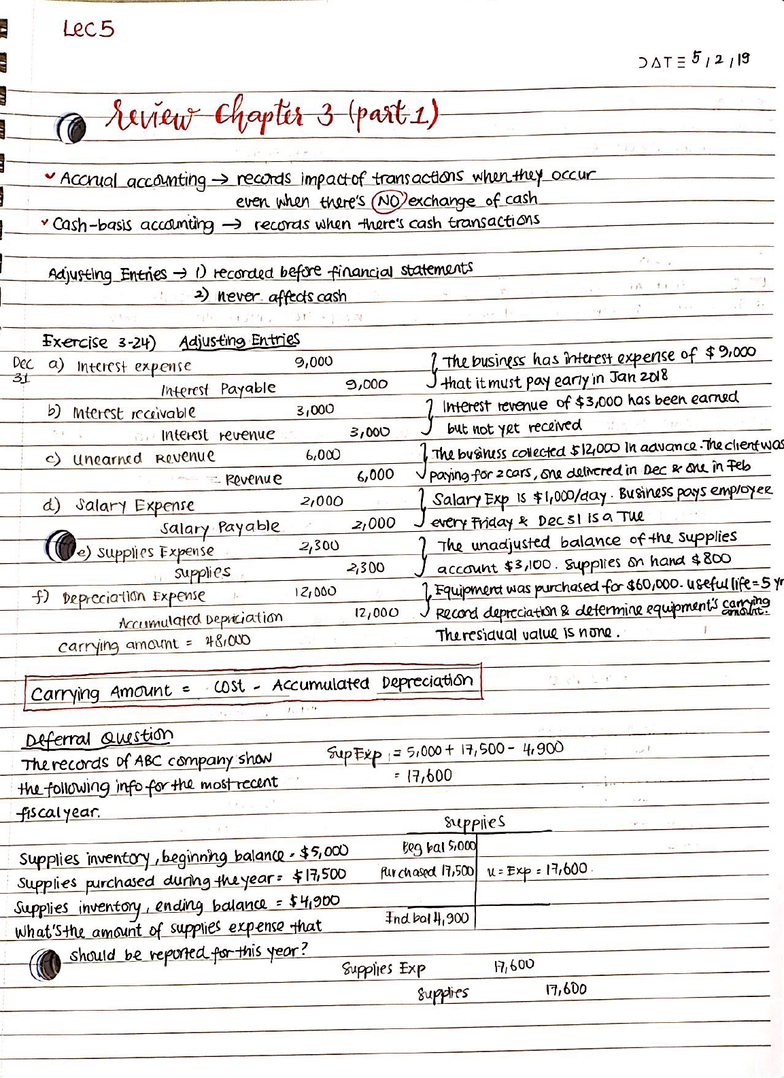 Lec 5
DATE 5/2/19
Review Chapter 3 (part 1)
✓ Accrual accounting → records impact of transactions when they occur
even when there's NO exchange of cash
✓ Cash-basis accounting → records when there's cash transactions
Adjusting Entries → 1) recorded before financial statements
2) never affects cash
Exercise 3-24) Adjusting Entries
Dec 31
a) Interest expense 9,000 } The business has interest expense of $9,000
Interest Payable 9,000 that it must pay early in Jan 2018
b) Interest receivable 3,000 } Interest revenue of $3,000 has been earned
Interest revenue 3,000 but not yet received
c) Unearned Revenue 6,000 } The business collected $12,000 in advance. The client was
Revenue 6,000 paying for 2 cars, one delivered in Dec & one in Feb
d) Salary Expense 2,000 } Salary Exp is $1,000/day. Business pays employee
Salary Payable 2,000 every Friday & Dec 31 is a Tue
e) Supplies Expense 2,300 } The unadjusted balance of the supplies
Supplies 2,300 account $3,100. Supplies on hand $800
f) Depreciation Expense 12,000 } Equipment was purchased for $60,000. useful life = 5 yr
Accumulated Depreciation 12,000 Record depreciation & determine equipment's carrying amount.
carrying amount = 48,000 The residual value is none.
Carrying Amount = cost - Accumulated Depreciation
Deferral Question
The records of ABC company show Sup Exp = 5,000 + 17,500 - 4,900
the following info for the most recent = 17,600
fiscal year.
Supplies
Supplies inventory, beginning balance = $5,000 Beg bal 5,000
Supplies purchased during the year = $17,500 Purchased 17,500 u = Exp = 17,600
Supplies inventory, ending balance = $4,900 End bal 4,900
What's the amount of supplies expense that
should be reported for this year?
Supplies Exp 17,600
Supplies 17,600